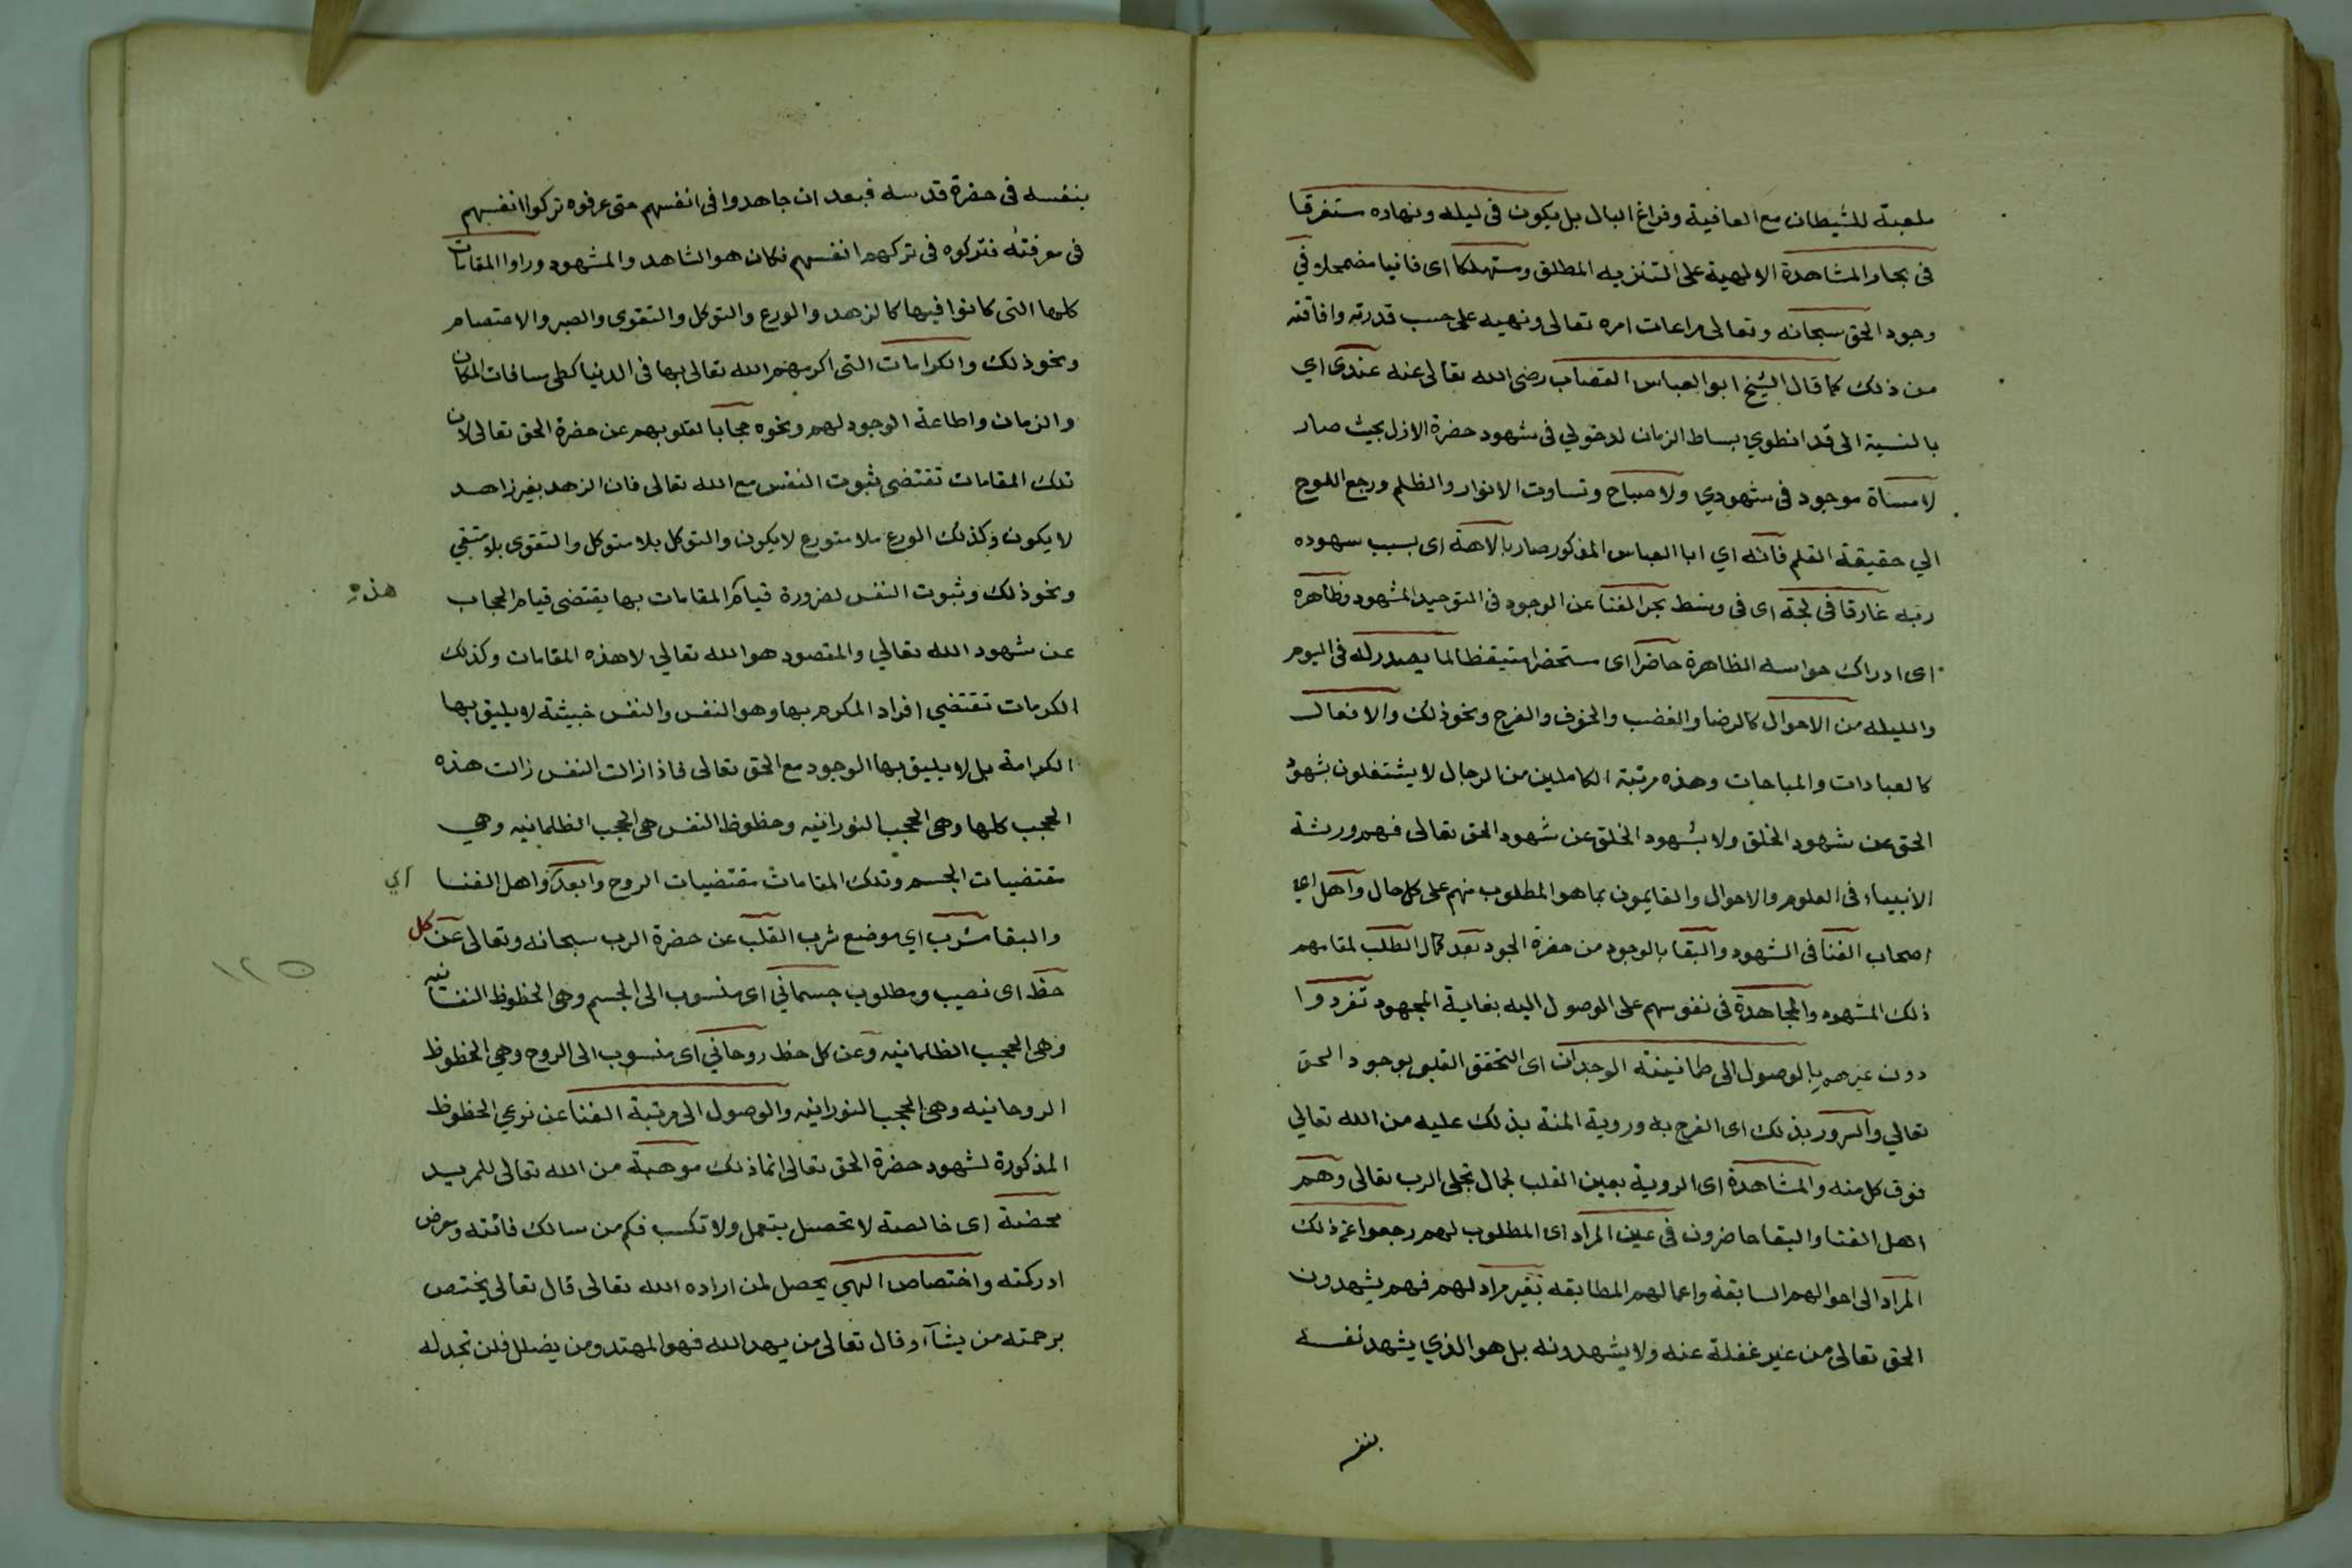 ملعبة للشيطان مع العافية وفراغ البال بل يكون في ليله ونهاره مستغرقا
في بحار المشاهدة الالهية على التنزيه المطلق ومستهلكا اى فانيا مضمحلا في
وجود الحق سبحانه وتعالى مراعات امره تعالى ونهيه على حسب قدرته وافاقته
من ذلك كما قال الشيخ ابو العباس القصاب رضى الله تعالى عنه عندى اي
بالنسبة الى قد انطوي بساط الزمان لدخولي في شهود حضرة الازل بحيث صار
لا مساة موجود في شهودي ولا صباح وتساوت الانوار والظلم ورجع اللوح
الي حقيقة القلم فانه اي ابا العباس المذكور صار بالاهه اى بسبب شهوده
ربه غارقا في لجة اى في وسط بحر الفنا عن الوجود في التوحيد المشهود وظاهره
اى ادراك حواسه الظاهرة حاضرا اى مستحضرا متيقظا لما يصدر له في اليوم
والليله من الاحوال كالرضا والغضب والخوف والفرح ونحو ذلك والافعال
كالعبادات والمباحات وهذه مرتبة الكاملين من الرجال لا يشتغلون بشهود
الحق عن شهود الخلق ولا بشهود الخلق عن شهود الحق تعالى فهم ورثة
الانبياء في العلوم والاحوال والقايمون بما هو المطلوب منهم على كل حال واهل اي
اصحاب الفنا في الشهود والبقا بالوجود من حضرة الجود بعد كمال الطلب لمقامهم
ذلك المشهود والمجاهدة في نفوسهم على الوصول اليه بغاية المجهود تفردوا
دون غيرهم بالوصول الى طمانينة الوجدان اى التحقق القلبى بوجود الحق
تعالي والسرور بذلك اى الفرح به وروية المنة بذلك عليه من الله تعالي
فوق كل منه والمشاهدة اى الروية بعين القلب لجمال تجلى الرب تعالى وهم
اهل الفنا والبقا حاضرون في عين المراد اى المطلوب لهم رجعوا عن ذلك
المراد الى احوالهم السابقة واعمالهم المطابقه بغير مراد لهم فهم يشهدون
الحق تعالى من غير غفلة عنه ولا يشهدونه بل هو الذي يشهد نفسه
بنفسه
بنفسه في حضرة قدسه فبعد ان جاهدوا في انفسهم حتى عرفوه تركوا انفسهم
في معرفته فتركوه في تركهم انفسهم فكان هو الشاهد والمشهود وراوا المقامات
كلها التى كانوا فيها كالزهد والورع والتوكل والتقوى والصبر والاعتصام
ونحو ذلك والكرامات التى اكرمهم الله تعالى بها في الدنيا كطى مسافات المكان
والزمان واطاعة الوجود لهم ونحوه حجابا لقلوبهم عن حضرة الحق تعالى لان
تلك المقامات تقتضى ثبوت النفس مع الله تعالى فان الزهد بغير زاهد
لا يكون وكذلك الورع بلا متورع لا يكون والتوكل بلا متوكل والتقوى بلا متقي
ونحو ذلك وثبوت النفس لضرورة قيام المقامات بها يقتضى قيام الحجاب
هذه
عن شهود الله تعالي والمقصود هو الله تعالي لا هذه المقامات وكذلك
الكرمات تقتضي افراد المكرم بها وهو النفس والنفس خبيثة لا يليق بها
الكرامة بل لا يليق بها الوجود مع الحق تعالى فاذا زالت النفس زالت هذه
الحجب كلها وهى الحجب النورانيه وحظوظ النفس هى الحجب الظلمانيه وهي
مقتضيات الجسم وتلك المقامات مقتضيات الروح وابعدوا اهل الفنا
اي
والبقا مشرب اي موضع شرب القلب عن حضرة الرب سبحانه وتعالى عن كل
حظ اى نصيب ومطلوب جسماني اى منسوب الى الجسم وهى الحظوظ النفسانيه
١٢٥
وهى الحجب الظلمانيه وعن كل حظ روحاني اى منسوب الى الروح وهي الحظوظ
الروحانيه وهى الحجب النورانيه والوصول الى مرتبة الفنا عن نوعي الحظوظ
المذكورة لشهود حضرة الحق تعالى انما ذلك موهبة من الله تعالى للمريد
محضة اى خالصة لا تحصل بتعمل ولا تكسب فكم من سالك فاتته ومعرض
ادركته واختصاص الهي يحصل لمن اراده الله تعالى قال تعالى يختص
برحمته من يشآء وقال تعالى من يهد الله فهو المهتد ومن يضلل فلن تجد له